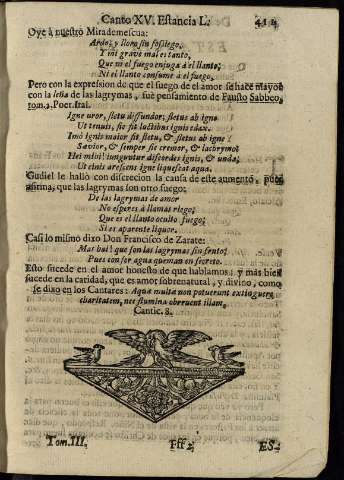 Canto XV. Estancia L. 411
Oye à nuestro Mirademescua:
Ardo; y lloro sin sossiego,
Y mi grave mal es tanto,
Que ni el fuego enjuga à el llanto;
Ni el llanto consume à el fuego.
Pero con la expresion de que el fuego de el amor se hace mayor
con la leña de las lagrymas, fuè pensamiento de Fausto Sabbeo,
tom. 2. Poet. Ital.
Igne uror, fletu diffundor; fletus ab igne
Ut tenuis, sic fit luctibus ignis edax.
Imò ignis maior fit fletu, & fletus ab igne
Sævior, & semper sic cremor, & lachrymo:
Hei mihi! iunguntur discordes ignis, & unda;
Ut cinis arescens igne liquescat aqua.
Gudiel le hallò con discrecion la causa de este aumento, pues
afirma, que las lagrymas son otro fuego;
De las lagrymas de amor
No esperes à llamas riego;
Que es el llanto oculto fuego;
Si es aparente liquor.
Casi lo mismo dixo Don Francisco de Zarate:
Mas hai! que son las lagrymas sin sento;
Pues con ser agua queman en secreto.
Esto sucede en el amor honesto de que hablamos: y mas bien
sucede en la caridad, que es amor sobrenatural, y divino, como
se dixo en los Cantares: Aquæ multæ non potuerunt extinguere
charitatem, nec flumina obruent illam.
Cantic. 8.
Tom. III. Fff 2 ES-